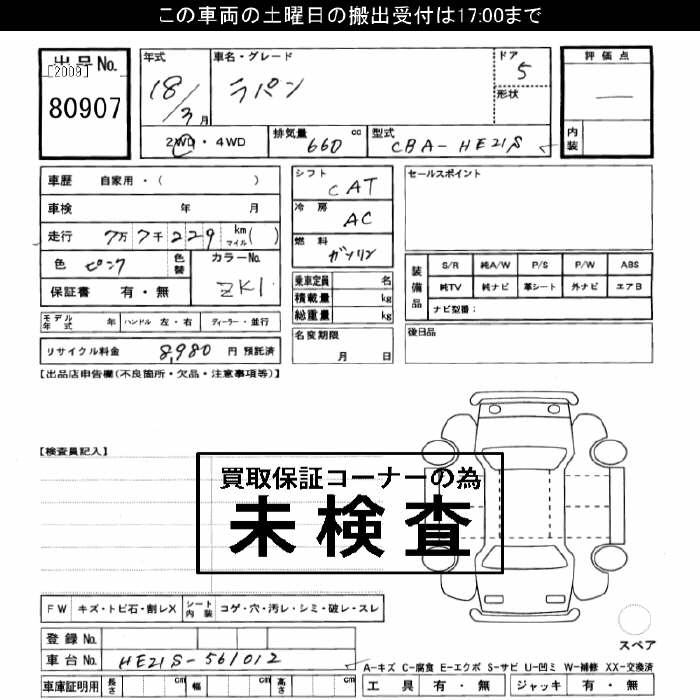 この車両の土曜日の搬出受付は17:00まで
出品No.
[2009]
80907
年式
18/3月
車名・グレード
ラパン
ドア
5
形状
評価点
―
内装
2WD・4WD
排気量 660 cc
型式 CBA-HE21S
車歴 自家用・( )
車検 年 月
走行 7万7千229 km マイル( )
色 ピンク
色替
カラーNo.
ZK1
保証書 有・無
シフト
CAT
冷房
AC
燃料
ガソリン
乗車定員 名
積載量 kg
総重量 kg
名変期限
月 日
セールスポイント
装備品
S/R 純A/W P/S P/W ABS
純TV 純ナビ 革シート 外ナビ エアB
ナビ型番:
後日品
モデル年式 年 ハンドル 左・右 ディーラー・並行
リサイクル料金 8,980 円 預託済
【出品店申告欄(不良箇所・欠品・注意事項等)】
【検査員記入】
買取保証コーナーの為
未検査
FW キズ・トビ石・割レX シート内装 コゲ・穴・汚レ・シミ・破レ・スレ
登録No.
車台No. HE21S-561012
車庫証明用 長さ cm 幅 cm 高さ cm
スペア
A-キズ C-腐食 E-エクボ S-サビ U-凹ミ W-補修 XX-交換済
工具 有・無 ジャッキ 有・無